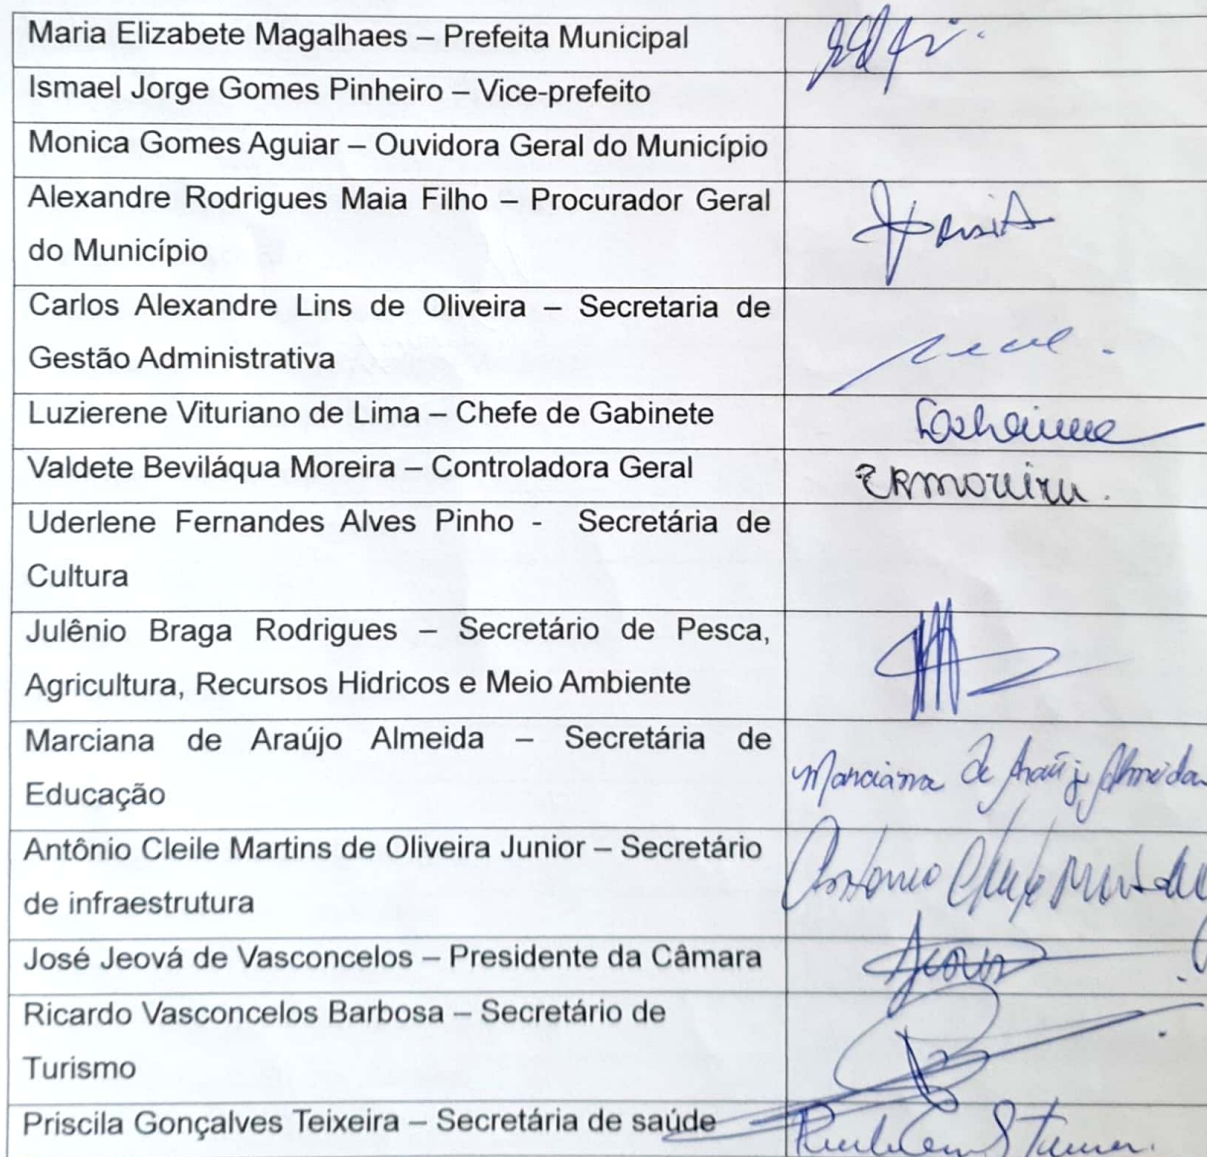 Maria Elizabete Magalhaes – Prefeita Municipal
Ismael Jorge Gomes Pinheiro – Vice-prefeito
Monica Gomes Aguiar – Ouvidora Geral do Município
Alexandre Rodrigues Maia Filho – Procurador Geral
do Município
Carlos Alexandre Lins de Oliveira – Secretaria de
Gestão Administrativa
Luzierene Vituriano de Lima – Chefe de Gabinete
Valdete Beviláqua Moreira – Controladora Geral
Uderlene Fernandes Alves Pinho - Secretária de
Cultura
Julênio Braga Rodrigues – Secretário de Pesca,
Agricultura, Recursos Hidricos e Meio Ambiente
Marciana de Araújo Almeida – Secretária de
Educação
Marciana de Araújo Almeida
Antônio Cleile Martins de Oliveira Junior – Secretário
de infraestrutura
Antonio
José Jeová de Vasconcelos – Presidente da Câmara
Ricardo Vasconcelos Barbosa – Secretário de
Turismo
Priscila Gonçalves Teixeira – Secretária de saúde